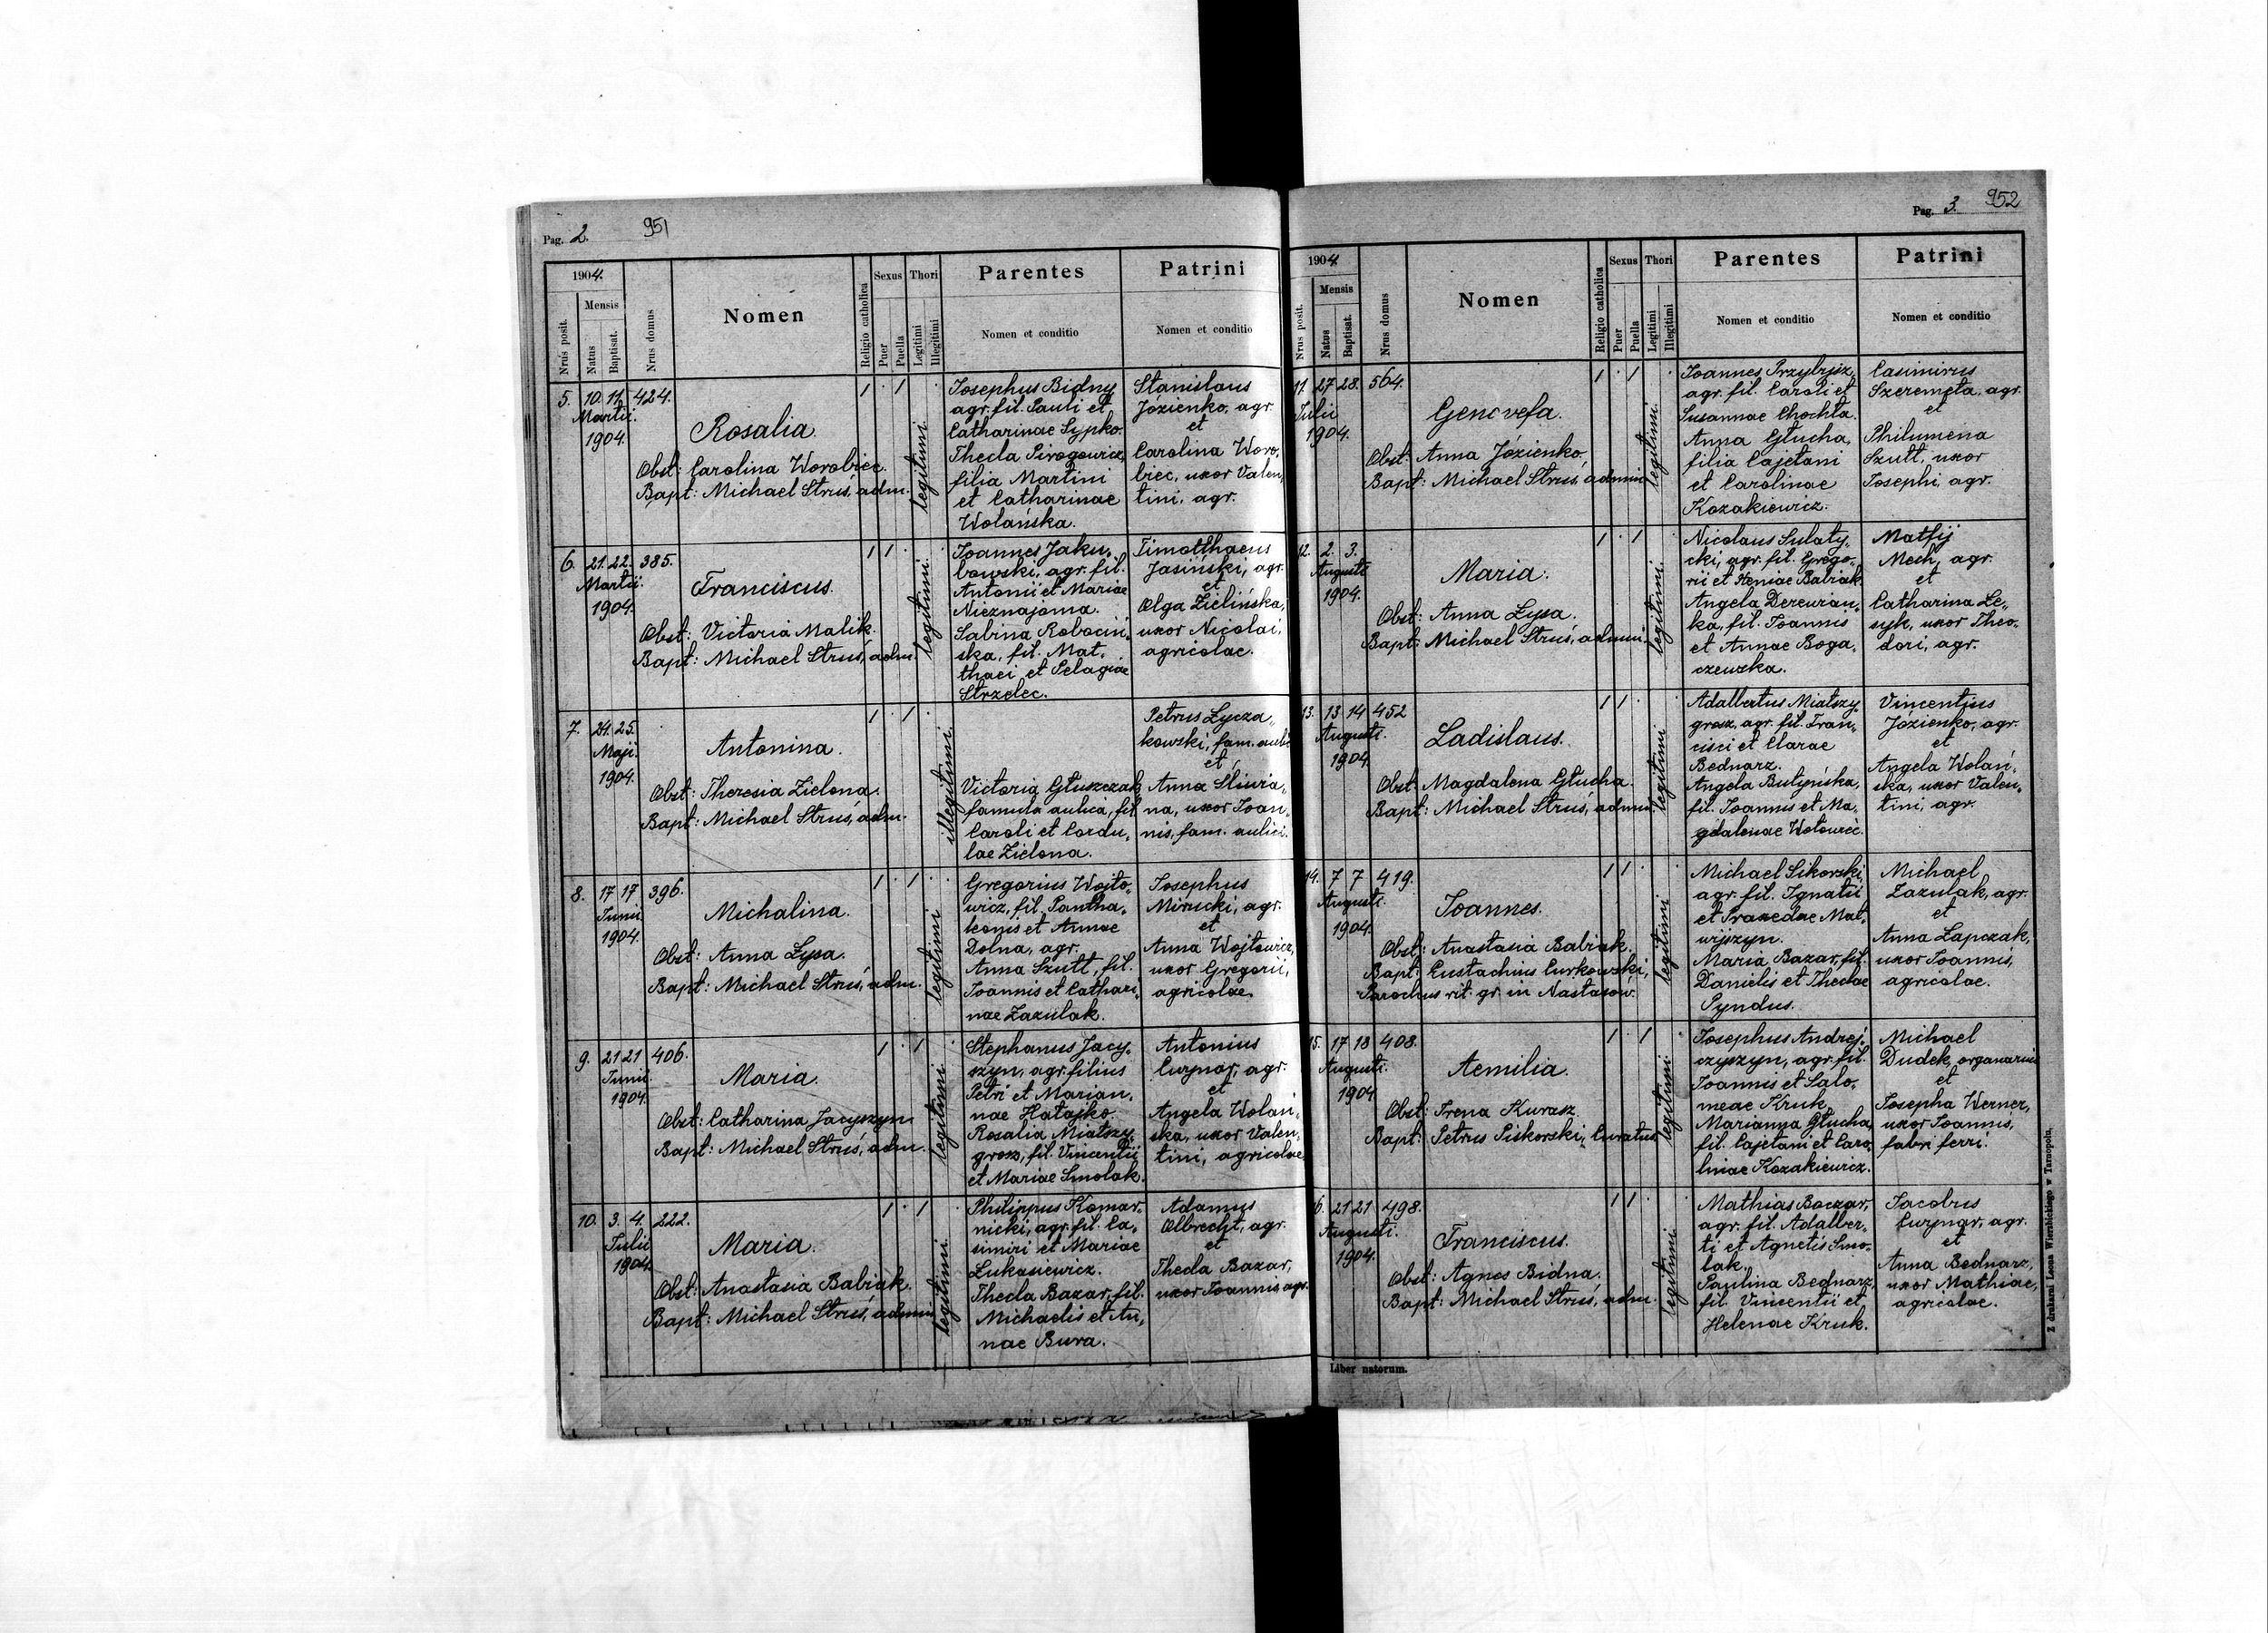 Pag. 2. 951
1904.
Nrus posit.
Mensis
Natus
Baptisat.
Nrus domus
Nomen
Religio catholica
Sexus
Puer
Puella
Thori
Legitimi
Illegitimi
Parentes
Nomen et conditio
Patrini
Nomen et conditio
5. 10. 11. 424.
Martii
1904.
Rosalia.
Obst: Carolina Worobiec.
Bapt: Michael Struś, adm.
legitimi
Josephus Bidny
agr. fil. Pauli et
Catharinae Sypko.
Thecla Pirogowicz,
filia Martini
et Catharinae
Wolańska.
Stanislaus
Józienko, agr.
et
Carolina Woro,
biec, uxor Valen,
tini, agr.
6. 21. 22. 385.
Martii
1904.
Franciscus.
Obst: Victoria Malik.
Bapt: Michael Struś, adm.
legitimi
Joannes Jaku,
bowski, agr. fil.
Antonii et Mariae
Nieznajoma.
Sabina Robociń,
ska, fil. Mat,
thaei et Pelagiae
Strzelec.
Timotthaeus
Jasiński, agr.
et
Olga Zielińska,
uxor Nicolai,
agricolae.
7. 24. 25.
Maji
1904.
Antonina.
Obst: Theresia Zielona.
Bapt: Michael Struś, adm.
illegitimi
Victoria Głuszczak,
famula aulica, fil.
Caroli et Cordu,
lae Zielona.
Petrus Łycza,
kowski, fam. aulic
et
Anna Śliwia,
na, uxor Joan,
nis, fam. aulici.
8. 17 17 396.
Junii
1904.
Michalina.
Obst: Anna Łysa.
Bapt: Michael Struś, adm.
legitimi
Gregorius Wojto,
wicz, fil. Pantha,
leonis et Annae
Dolna, agr.
Anna Szutt, fil.
Joannis et Cathari,
nae Zazulak.
Josephus
Mirucki, agr.
et
Anna Wojtowicz,
uxor Gregorii,
agricolae.
9. 21 21 406.
Junii
1904.
Maria.
Obst: Catharina Jacyszyn
Bapt: Michael Struś, adm.
legitimi
Stephanus Jacy,
szyn, agr. filius
Petri et Marian,
nae Hatajko.
Rosalia Miatszy,
grosz, fil. Vincentii
et Mariae Smolak.
Antonius
Curynar, agr.
et
Angela Wolań,
ska, uxor Valen,
tini, agricolae
10. 3. 4. 222.
Julii
1904.
Maria.
Obst: Anastasia Babiak.
Bapt: Michael Struś, admin
legitimi
Philippus Komar,
nicki, agr. fil. Ca,
simiri et Mariae
Łukasiewicz.
Thecla Bazar, fil.
Michaelis et An,
nae Bura.
Adamus
Olbrecht, agr.
et
Thecla Bazar,
uxor Joannis, agr.
Pag. 3. 952
1904.
Nrus posit.
Mensis
Natus
Baptisat.
Nrus domus
Nomen
Religio catholica
Sexus
Puer
Puella
Thori
Legitimi
Illegitimi
Parentes
Nomen et conditio
Patrini
Nomen et conditio
11 27 28. 564.
Julii
1904.
Genovefa.
Obst: Anna Józienko.
Bapt: Michael Struś, admin
legitimi
Joannes Przybysz,
agr. fil. Caroli et
Susannae Chochla.
Anna Głucha,
filia Cajetani
et Carolinae
Kozakiewicz.
Casimirus
Szeremeta, agr.
et
Philumena
Szutt, uxor
Josephi, agr.
12. 2. 3.
Augusti
1904.
Maria.
Obst: Anna Łysa.
Bapt: Michael Struś, admin.
legitimi.
Nicolaus Sulaty,
cki, agr. fil. Grego,
rii et Xeniae Babiak
Angela Derewian,
ka, fil. Joannis
et Annae Boga,
czewska.
Matfij
Mech, agr.
et
Catharina Le,
syk, uxor Theo,
dori, agr.
13. 13 14 452
Augusti.
1904.
Ladislaus.
Obst: Magdalena Głucha.
Bapt: Michael Struś, admin.
legitimi
Adalbertus Miatszy,
grosz, agr. fil. Fran,
cisci et Clarae
Bednarz.
Angela Butyńska,
fil. Joannis et Ma,
gdalenae Wołowiec.
Vincentius
Józienko, agr.
et
Angela Wolań,
ska, uxor Valen,
tini, agr.
14. 7 7 419.
Augusti.
1904.
Joannes.
Obst: Anastasia Babiak.
Bapt: Eustachius Curkowski,
Parochus rit. gr. in Nastasów.
legitimi
Michael Sikorski,
agr. fil. Ignatii
et Praxedae Mat,
wijszyn.
Maria Bazar, fil.
Danielis et Theclae
Pyndus.
Michael
Zazulak, agr.
et
Anna Łapczak,
uxor Joannis,
agricolae.
15. 17 18 408.
Augusti.
1904
Aemilia.
Obst: Irena Kurasz.
Bapt: Petrus Piskorski, Curatus
legitimi
Josephus Andrej,
czyszyn, agr. fil.
Joannis et Salo,
meae Kruk.
Marianna Głucha,
fil. Cajetani et Caro,
linae Kozakiewicz.
Michael
Dudek, organarius
et
Josepha Werner,
uxor Joannis,
fabri ferri.
16. 21 21 498.
Augusti.
1904.
Franciscus.
Obst: Agnes Bidna.
Bapt: Michael Struś, adm.
legitimi
Mathias Baczar,
agr. fil. Adalber,
ti et Agnetis Smo,
lak.
Paulina Bednarz,
fil. Vincentii et
Helenae Kruk.
Jacobus
Curynar, agr.
et
Anna Bednarz,
uxor Mathiae,
agricolae.
Liber natorum.
Z drukarni Leona Wierzbickiego w Tarnopolu.